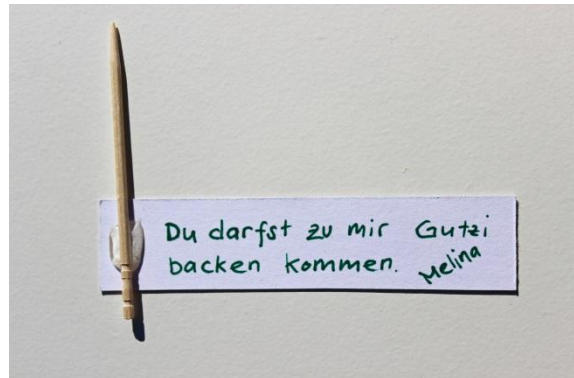 Du darfst zu mir Gutzi
backen kommen. Melina